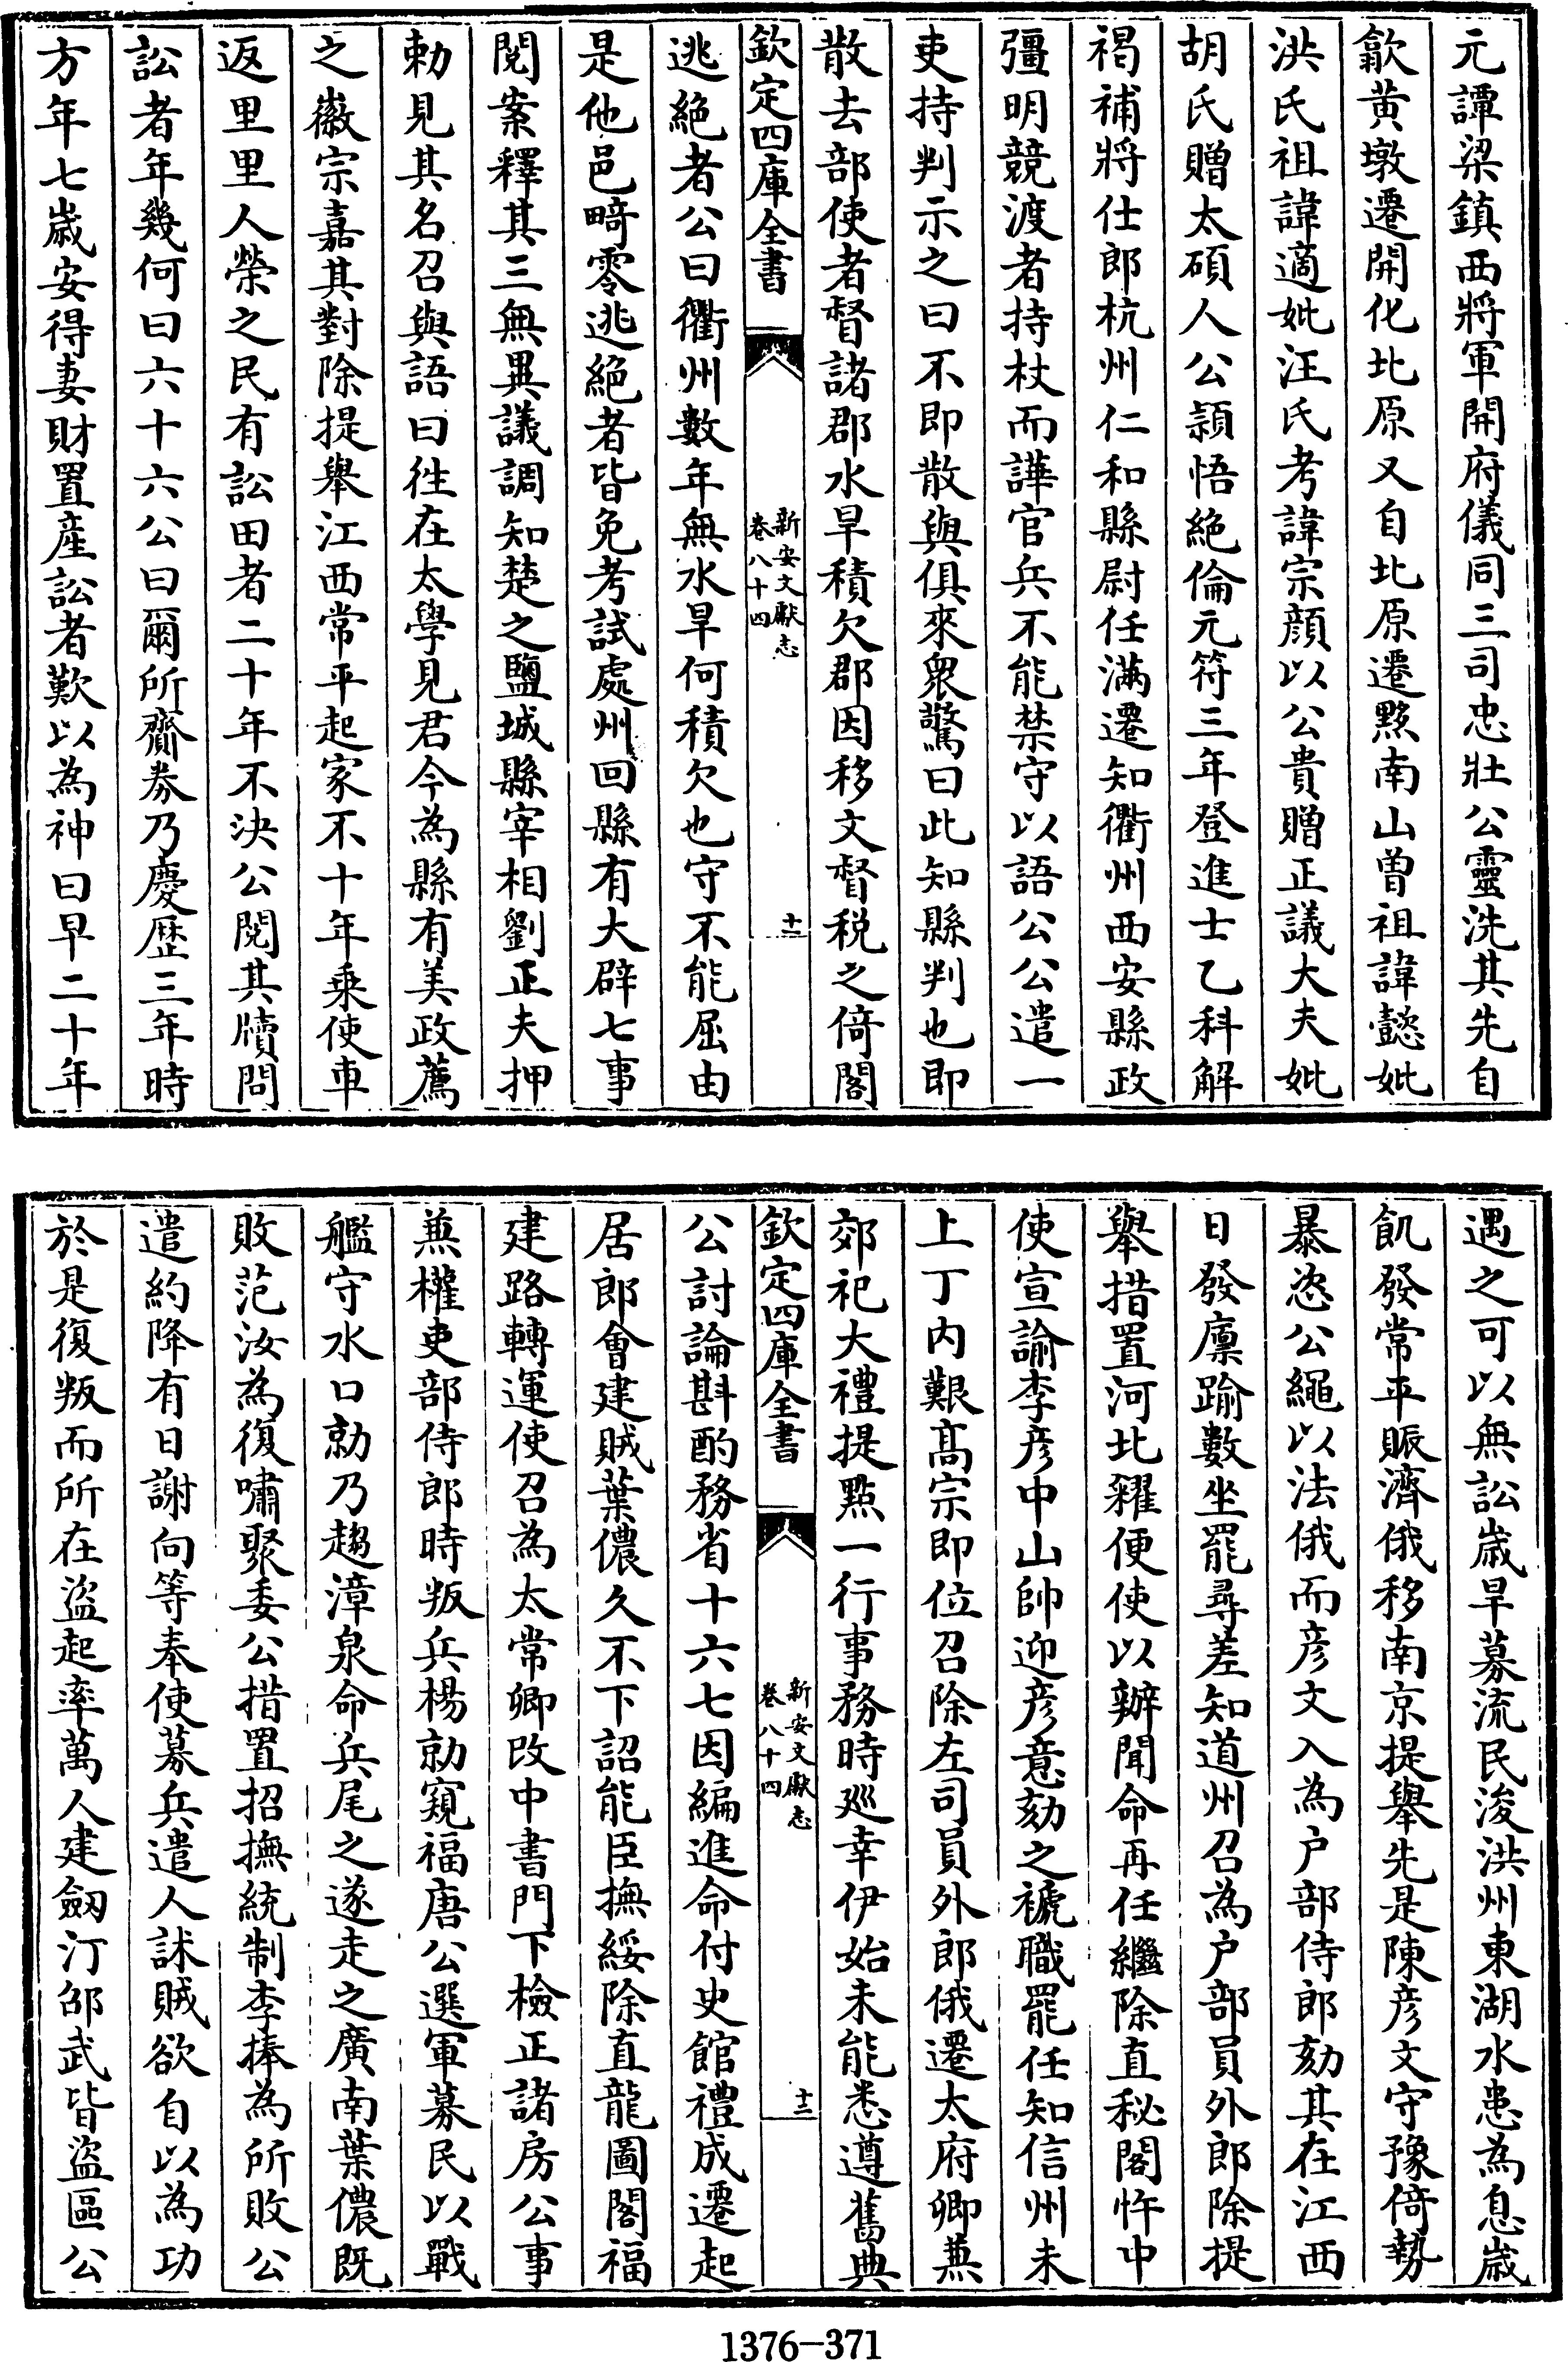 元譚梁鎮西將軍開府儀同三司忠壯公靈洗其先自
歙黄墩遷開化北原又自北原遷黟南山曽祖諱懿妣
洪氏祖諱適妣汪氏考諱宗顔以公貴贈正議大夫妣
胡氏贈太碩人公穎悟絶倫元符三年登進士乙科解
褐補將仕郎杭州仁和縣尉任滿遷知衢州西安縣政
彊明競渡者持杖而譁官兵不能禁守以語公公遣一
吏持判示之曰不即散與俱來衆驚曰此知縣判也即
散去部使者督諸郡水旱積欠郡因移文督税之倚閣
欽定四庫全書
新安文獻志
卷八十四
十一
逃絶者公曰衢州數年無水旱何積欠也守不能屈由
是他邑畸零逃絶者皆免考試處州回縣有大辟七事
閱案釋其三無異議調知楚之鹽城縣宰相劉正夫押
勅見其名召與語曰徃在太學見君今為縣有美政薦
之徽宗嘉其對除提舉江西常平起家不十年乗使車
返里里人榮之民有訟田者二十年不決公閱其牘問
訟者年幾何曰六十六公曰爾所齎劵乃慶歴三年時
方年七歳安得妻財置産訟者歎以為神曰早二十年
遇之可以無訟歳旱募流民浚洪州東湖水患為息歳
飢發常平賑濟俄移南京提舉先是陳彦文守豫倚勢
暴恣公繩以法俄而彦文入為户部侍郎劾其在江西
日發廪踰數坐罷尋差知道州召為户部員外郎除提
舉措置河北糴便使以辦聞命再任繼除直秘閣忤中
使宣諭李彦中山帥迎彦意劾之褫職罷任知信州未
上丁内艱髙宗即位召除左司員外郎俄遷太府卿兼
郊祀大禮提點一行事務時廵幸伊始未能悉遵舊典
欽定四庫全書
新安文獻志
卷八十四
十二
公討論斟酌務省十六七因編進命付史館禮成遷起
居郎㑹建賊葉儂久不下詔能臣撫綏除直龍圖閣福
建路轉運使召為太常卿改中書門下檢正諸房公事
兼權吏部侍郎時叛兵楊勍窺福唐公選軍募民以戰
艦守水口勍乃趨漳泉命兵尾之遂走之廣南葉儂既
敗范汝為復嘯聚委公措置招撫統制李捧為所敗公
遣約降有日謝向等奉使募兵遣人訹賊欲自以為功
於是復叛而所在盜起率萬人建劒汀邵武皆盜區公
1376-371